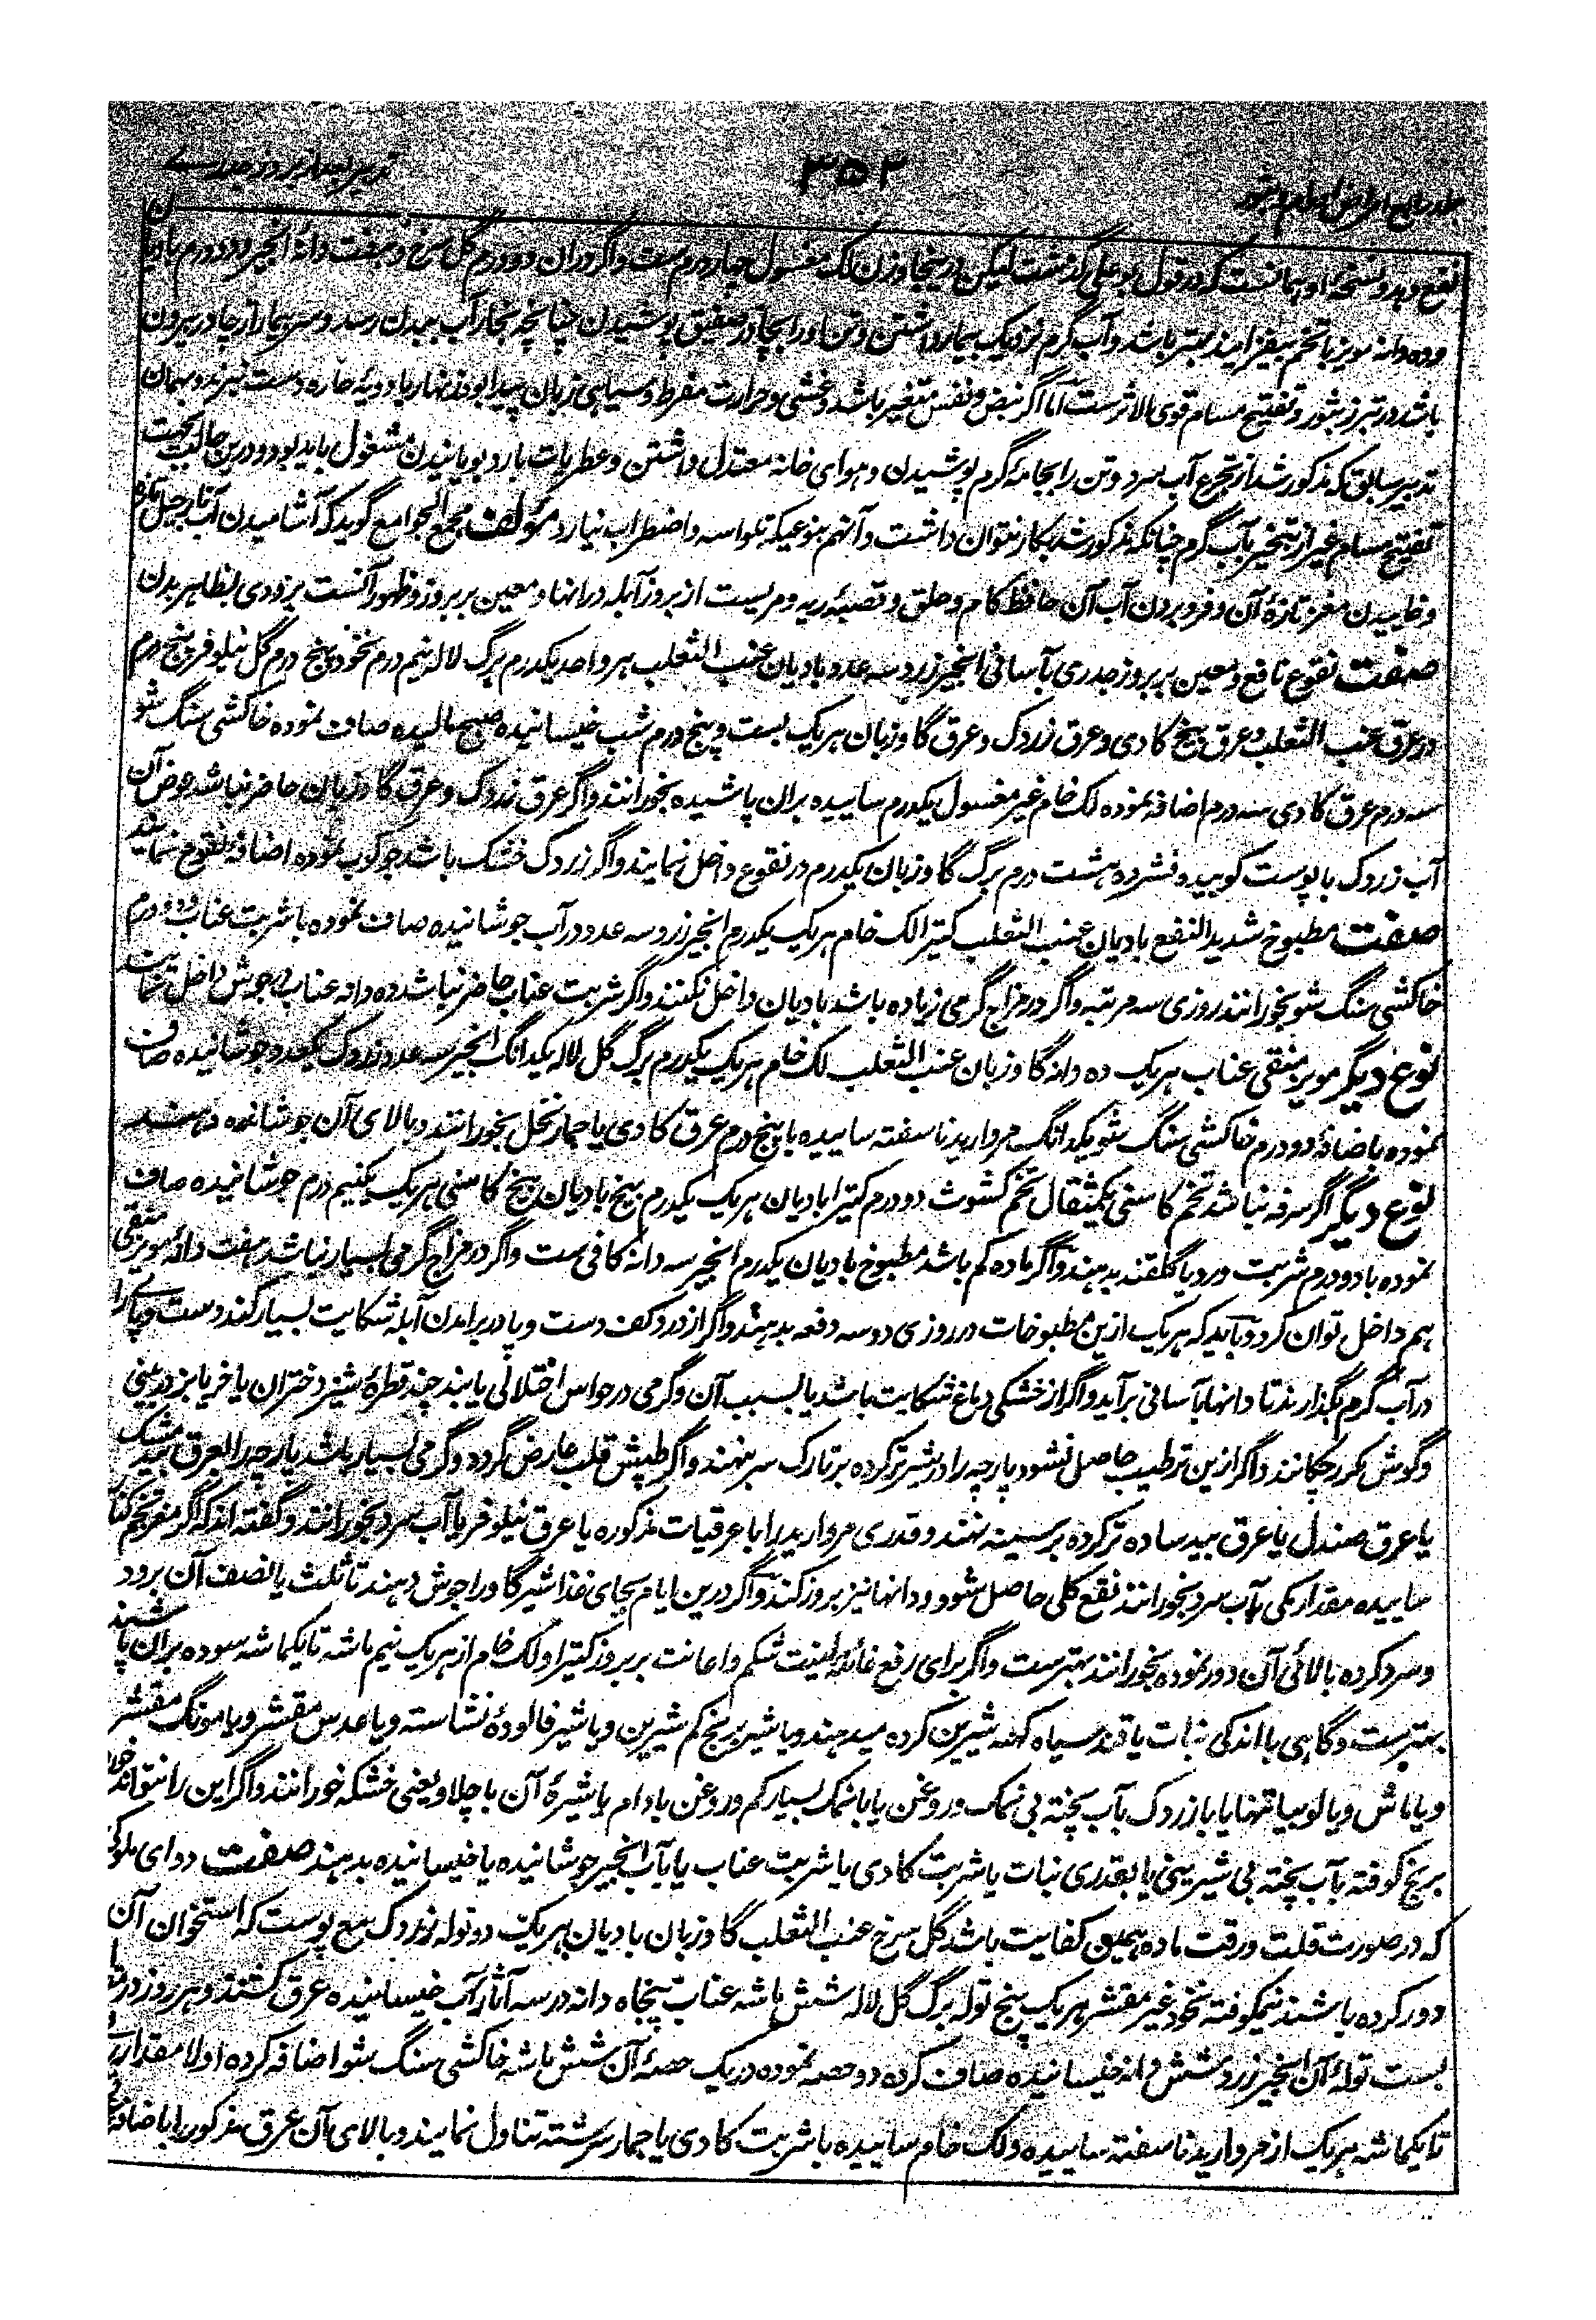 ۳۵۲
نفع دهد و نسخه او همانست که در قول بوعلی گذشت لیکن درینجا وزن لک مغسول چهار درم ست و اگر در ان دو درم گل سرخ و هفت دانه انجیر و دو درم بادیان
و ده دانه مویز با تخم بیفزایند بهتر باشد و آب گرم نزدیک بیمار داشتن و تن او را بچادر صفیق پوشیدن چنانچه بخار آب ببدن رسد و سر بیمار از چادر بیرون
باشد در تبرز بثور و تفتیح مسام قوی الاثر ست اما اگر نبض و نفس متغیر باشد و غشی و حرارت مفرط و سیاهی زبان پیدا بود زنهار بادویهٔ حاره دست نبرند و بهمان
تدبیر سابق که مذکور شد از تجرع آب سرد و تن را بجامهٔ گرم پوشیدن و هوای خانه معتدل داشتن و عطریات بارد بویانیدن مشغول باید بود و درین حالت بجهت
تفتیح مسام غیر از تبخیر بآب گرم چنانکه مذکور شد بکار نتوان داشت و آنهم بنوعیکه تلواسه و اضطراب نیارد مؤلف مجمع الجوامع گوید که آشامیدن آب نارجیل تازه
و خاییدن مغز تازهٔ آن و فرو بردن آب آن حافظ کام و حلق و قصبهٔ ریه و مریست از بروز آبله در انها و معین بر بروز و ظهور آنست بزودی بظاهر بدن
صفت نقوع نافع و معین بر بروز جدری بآسانی انجیر زرد سه عدد بادیان عنب الثعلب هر واحد یکدرم برگ لاله نیم درم نخود پنج درم گل نیلوفر پنج درم
در عرق عنب الثعلب و عرق بیخ کادی و عرق زردک و عرق گاوزبان هر یک بست و پنج درم شب خیسانیده صبح مالیده صاف نموده خاکشی سنگ شو
سه درم عرق کادی سه درم اضافه نموده لک خام غیر مغسول یکدرم ساییده بران پاشیده بخورانند و اگر عرق زردک و عرق گاوزبان حاضر نباشد عوض آن
آب زردک با پوست کوبیده فشرده هشت درم برگ گاوزبان یکدرم در نقوع داخل نمایند و اگر زردک خشک باشد جوکوب نموده اضافهٔ نقوع نمایند
صفت مطبوخ شدید النفع بادیان عنب الثعلب کتیرا لک خام هر یک یکدرم انجیر زرد سه عدد در آب جوشانیده صاف نموده با شربت عناب و دو درم
خاکشی سنگ شو بخورانند روزی سه مرتبه و اگر در مزاج گرمی زیاده باشد بادیان داخل نکنند و اگر شربت عناب حاضر نباشد ده دانه عناب در جوش داخل نمایند
نوع دیگر مویز منقی عناب هر یک ده دانه گاوزبان عنب الثعلب لک خام هر یک یکدرم برگ گل لاله یکدانگ انجیر سه عدد زردک یکعدد جوشانیده صاف
نموده باضافهٔ دو درم خاکشی سنگ شو یکدانگ مروارید ناسفته ساییده با پنج درم عرق کادی یا جمار نخل بخورانند و بالای آن جوشانده دهند
نوع دیگر اگر سرفه نباشد تخم کاسنی یکمثقال تخم کشوث دو درم کتیرا بادیان هر یک یکدرم بیخ بادیان بیخ کاسنی هر یک یکنیم درم جوشانیده صاف
نموده با دو درم شربت ورد یا گلقند بدهند و اگر ماده کم باشد مطبوخ بادیان یکدرم انجیر سه دانه کافی ست و اگر در مزاج گرمی بسیار نباشد هفت دانهٔ مویز منقی
هم داخل توان کرد و باید که هر یک ازین مطبوخات در روزی دو سه دفعه بدهند و اگر از درد کف دست و پا در برامدن آبله شکایت بسیار کند دست و پای را
در آب گرم بگذارند تا دانها بآسانی برآید و اگر از خشکی دماغ شکایت باشد یا بسبب آن و گرمی در حواس اختلالی یابند چند قطرهٔ شیر دختران یا خر یا بز در بینی
و گوش مکرر چکانند و اگر ازین ترطیب حاصل نشود پارچه را در شیر تر کرده بر تارک سر بنهند و اگر طپش قلب عارض گردد و گرمی بسیار باشد پارچه را بعرق بید مشک
یا عرق صندل یا عرق بید ساده تر کرده بر سینه نهند و قدری مروارید را با عرقیات مذکوره یا عرق نیلوفر یا آب سرد بخورانند و گفته اند که اگر مغز تخم
ساییده مقدار یکی بآب سرد بخورانند نفع کلی حاصل شود و دانها نیز بروز کند و اگر درین ایام بجای غذا شیر گاو را جوش دهند تا ثلث یا نصف آن برود
و سرد کرده بالائی آن دور نموده بخورانند بهتر ست و اگر برای رفع غائلهٔ لینت شکم و اعانت بر بروز کتیرا و لک خام از هر یک نیم ماشه تا یکماشه سوده بران پاشند
بهتر ست و گاهی با اندکی نبات یا قند سیاه کهنه شیرین کرده میدهند و یا شیر برنج کم شیرین و یا شیر فالودهٔ نشاسته و یا عدس مقشر و یا مونگ مقشر
و یا ماش و یا لوبیا تنها یا با زردک بآب پخته بی نمک و روغن یا با نمک بسیار کم و روغن بادام یا شیرهٔ آن با چلاو یعنی خشکه خورانند و اگر این را نتواند خورد
برنج کوفته بآب پخته بی شیرینی یا بقدری نبات یا شربت کادی یا شربت عناب یا بآب انجیر جوشانیده یا خیسانیده بدهند صفت دوای ملوکی
که در صورت قلت و رقت ماده همین کفایت باشد گل سرخ عنب الثعلب گاوزبان بادیان هر یک دو توله زردک مع پوست که استخوان آن
دور کرده باشند نیمکوفته نخود غیر مقشر هر یک پنج توله برگ گل لاله شش ماشه عناب پنجاه دانه در سه آثار آب خیسانیده عرق کشند و هر روز در
بست تولهٔ آن انجیر زرد شش دانه خیسانیده صاف کرده دو حصه نموده در یک حصهٔ آن شش ماشه خاکشی سنگ شو اضافه کرده اولا مقدار
تا یکماشه هر یک از مروارید ناسفته ساییده و لک خام ساییده با شربت کادی یا جمار سرشته تناول نمایند و بالای آن عرق مذکور را باضافهٔ